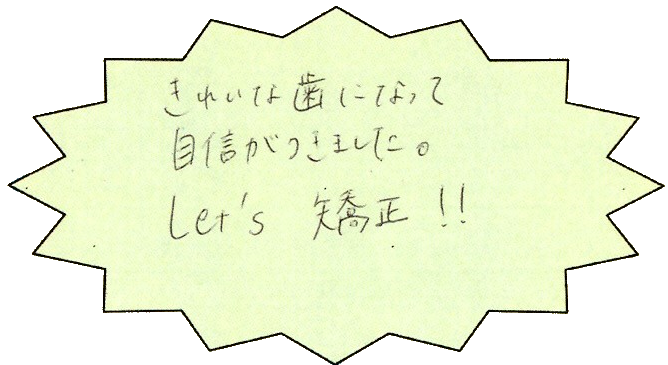 きれいな歯になって
自信がつきました。
Let's 矯正!!